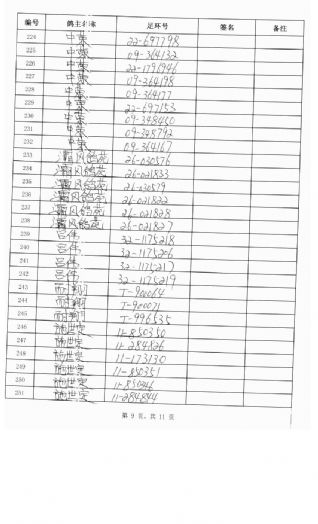 编号 鸽主名称 足环号 签名 备注
224 中荣 22-697798
225 中荣 09-364132
226 中荣 22-1791946
227 中荣 09-264198
228 中荣 09-364177
229 中荣 22-697153
230 中荣 09-348450
231 中荣 09-348792
232 中荣 09-364167
233 霸风鸽苑 26-030576
234 霸风鸽苑 26-021833
235 霸风鸽苑 26-030579
236 霸风鸽苑 26-021822
237 霸风鸽苑 26-021828
238 霸风鸽苑 26-021827
239 吕伟 32-1175218
240 吕伟 32-1175206
241 吕伟 32-1175217
242 吕伟 32-1175219
243 T-900064
244 T-900071
245 T-996535
246 施世定 11-850350
247 施世定 11-284826
248 施世定 11-173130
249 施世定 11-850351
250 施世定 11-850346
251 施世定 11-284844
第 9 页，共 11 页